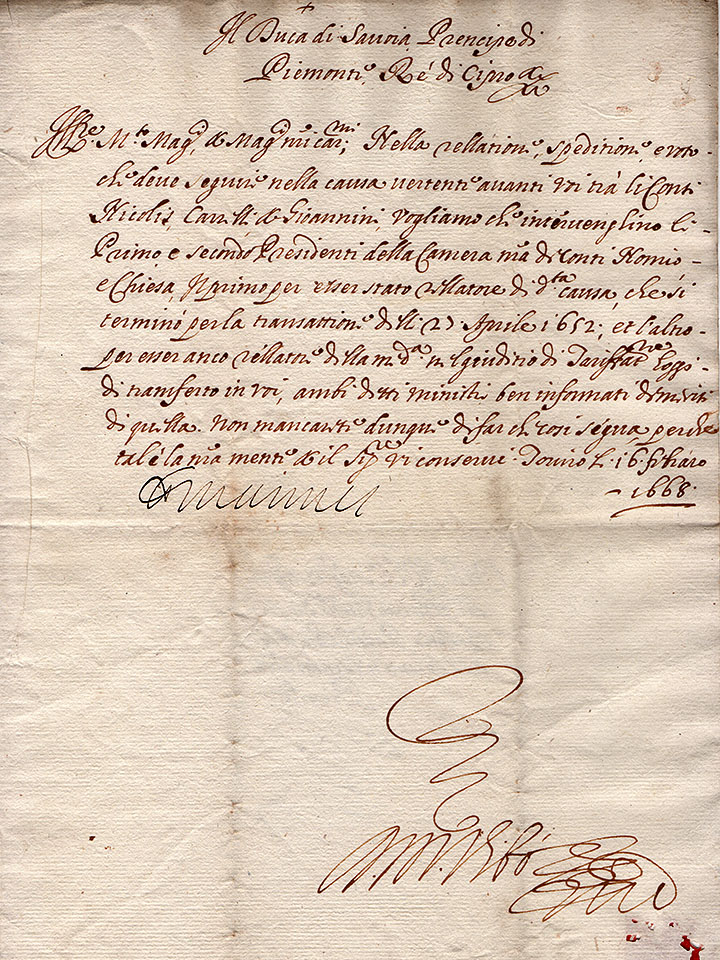 Il Duca di Savoia Prencipe di
Piemonte Ré di Cipro &c
M.to Mag.ci & Mag.ci n.ri car.mi; Nella rellatione, speditione, e voto
che deve seguire nella causa vertente avanti voi trà li Conti
Nicolis, & Gioannini, vogliamo che intervenghino li
Primo e secondo Presidenti della Camera n.ra di Conti Nomis
e Chiesa, Il primo per esser stato rellatore di d.ta causa, che si
terminó per la transattione delli 27 Aprile 1652; et l'altro
per esser anco rellatore della med.a nel giuditio di
di transferto in voi, ambi detti ministri ben informati di meriti
di quella. Non mancarete dunque di far che cosi segua perche
tal é la n.ra mente & il Sig.re vi conservi. Torino li 16 febraro
1668.